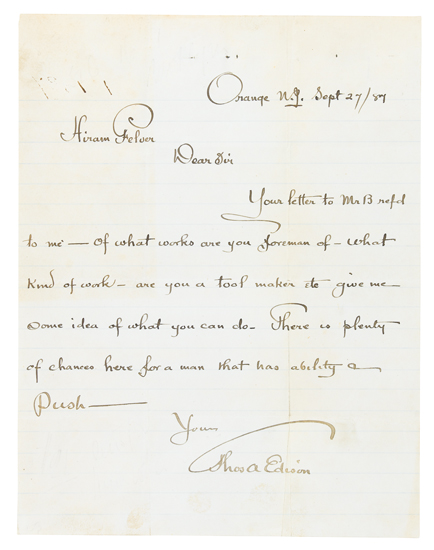 Orange N.J. Sept 27/87
Hiram Felver
Dear Sir
Your letter to Mr B refd
to me — Of what works are you foreman of – what
kind of work – are you a tool maker etc give me
some idea of what you can do – There is plenty
of chances here for a man that has ability &
Push —
Yours
Thos A Edison